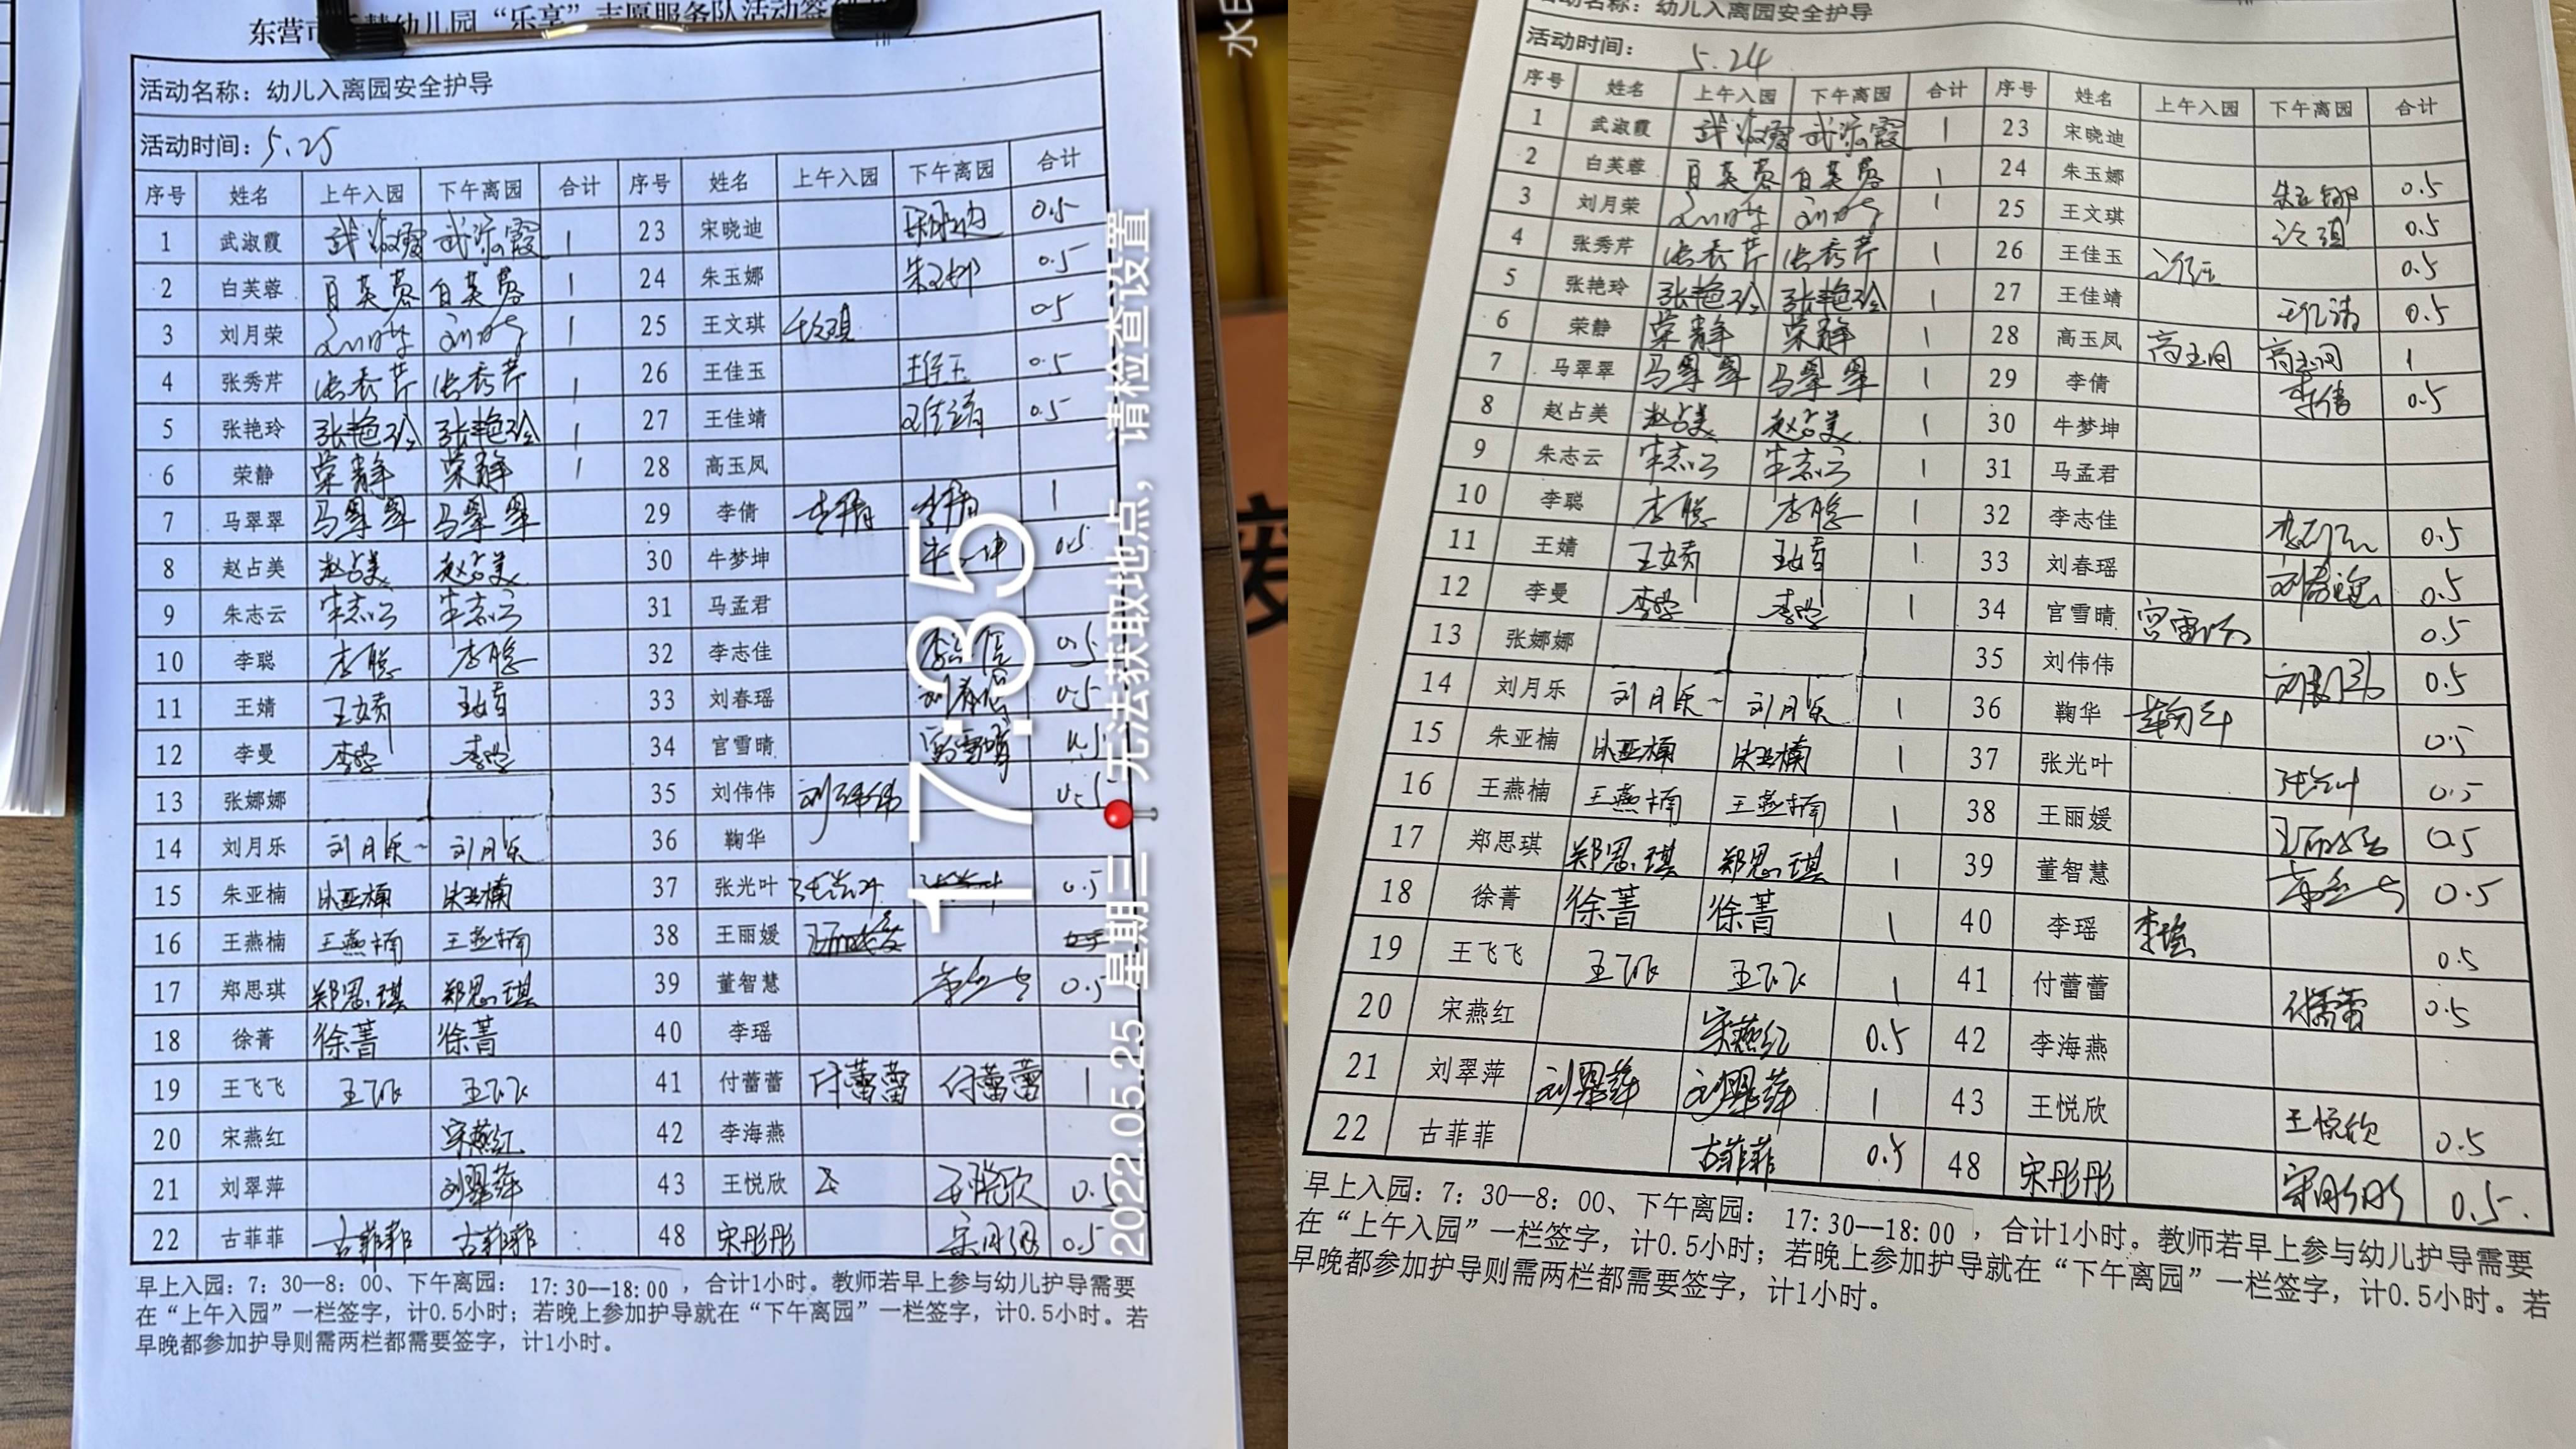 活动名称：幼儿入离园安全护导
活动时间：5.25
序号 姓名 上午入园 下午离园 合计 序号 姓名 上午入园 下午离园 合计
1 武淑霞 武淑霞 武淑霞 1 23 宋晓迪 宋晓迪 0.5
2 白芙蓉 白芙蓉 白芙蓉 1 24 朱玉娜 朱玉娜 0.5
3 刘月荣 1 25 王文琪 0.5
4 张秀芹 张秀芹 张秀芹 1 26 王佳玉 王佳玉 0.5
5 张艳玲 张艳玲 张艳玲 1 27 王佳靖 王佳靖 0.5
6 荣静 荣静 荣静 1 28 高玉凤
7 马翠翠 马翠翠 马翠翠 29 李倩 李倩 李倩 1
8 赵占美 赵占美 赵占美 30 牛梦坤 0.5
9 朱志云 朱志云 朱志云 31 马孟君
10 李聪 李聪 李聪 32 李志佳 0.5
11 王婧 王婧 王婧 33 刘春瑶 0.5
12 李曼 李曼 李曼 34 官雪晴 官雪晴
13 张娜娜 35 刘伟伟 刘伟伟
14 刘月乐 刘月乐 刘月乐 36 鞠华
15 朱亚楠 朱亚楠 朱亚楠 37 张光叶 张光叶 0.5
16 王燕楠 王燕楠 王燕楠 38 王丽媛
17 郑思琪 郑思琪 郑思琪 39 董智慧 0.5
18 徐菁 徐菁 徐菁 40 李瑶
19 王飞飞 王飞飞 王飞飞 41 付蕾蕾 付蕾蕾 付蕾蕾 1
20 宋燕红 宋燕红 42 李海燕
21 刘翠萍 刘翠萍 43 王悦欣 王悦欣
22 古菲菲 古菲菲 古菲菲 48 宋彤彤 宋彤彤 0.5
早上入园：7：30—8：00、下午离园： 17:30—18:00 ，合计1小时。教师若早上参与幼儿护导需要
在“上午入园”一栏签字，计0.5小时；若晚上参加护导就在“下午离园”一栏签字，计0.5小时。若
早晚都参加护导则需两栏都需要签字，计1小时。
17:35
2022.05.25 星期三 无法获取地点，请检查设置
活动名称：幼儿入离园安全护导
活动时间： 5.24
序号 姓名 上午入园 下午离园 合计 序号 姓名 上午入园 下午离园 合计
1 武淑霞 武淑霞 武淑霞 1 23 宋晓迪
2 白芙蓉 白芙蓉 白芙蓉 1 24 朱玉娜 朱玉娜 0.5
3 刘月荣 1 25 王文琪 0.5
4 张秀芹 张秀芹 张秀芹 1 26 王佳玉 0.5
5 张艳玲 张艳玲 张艳玲 1 27 王佳靖 0.5
6 荣静 荣静 荣静 1 28 高玉凤 高玉凤 高玉凤 1
7 马翠翠 马翠翠 马翠翠 1 29 李倩 李倩 0.5
8 赵占美 赵占美 赵占美 1 30 牛梦坤
9 朱志云 朱志云 朱志云 1 31 马孟君
10 李聪 李聪 李聪 1 32 李志佳 0.5
11 王婧 王婧 王婧 1 33 刘春瑶 刘春瑶 0.5
12 李曼 李曼 李曼 1 34 官雪晴 官雪晴 0.5
13 张娜娜 35 刘伟伟 0.5
14 刘月乐 刘月乐 刘月乐 1 36 鞠华 鞠华 0.5
15 朱亚楠 朱亚楠 朱亚楠 1 37 张光叶 张光叶 0.5
16 王燕楠 王燕楠 王燕楠 1 38 王丽媛 王丽媛 0.5
17 郑思琪 郑思琪 郑思琪 1 39 董智慧 0.5
18 徐菁 徐菁 徐菁 1 40 李瑶 李瑶 0.5
19 王飞飞 王飞飞 王飞飞 1 41 付蕾蕾 付蕾蕾 0.5
20 宋燕红 宋燕红 0.5 42 李海燕
21 刘翠萍 刘翠萍 刘翠萍 1 43 王悦欣 王悦欣 0.5
22 古菲菲 古菲菲 0.5 48 宋彤彤 宋彤彤 0.5
早上入园：7：30—8：00、下午离园： 17:30—18:00 ，合计1小时。教师若早上参与幼儿护导需要
在“上午入园”一栏签字，计0.5小时；若晚上参加护导就在“下午离园”一栏签字，计0.5小时。若
早晚都参加护导则需两栏都需要签字，计1小时。